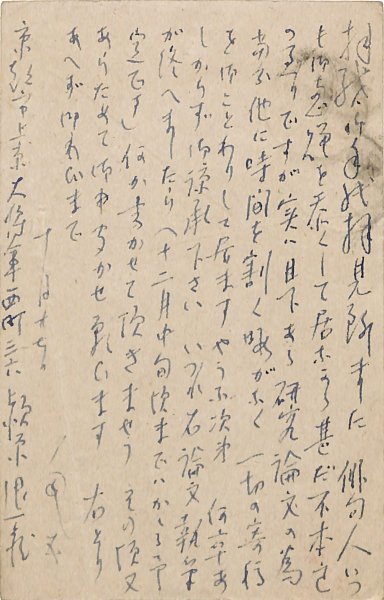 拝啓 御手紙拝見致しました 俳句人いつ
も御恵贈を忝くして居ながら甚だ不本意
のようですが実は目下ある研究論文の為
当分他に時間を割く暇がなく 一切の寄稿
をおことわりして居ます やうな次第 何卒あ
しからず御諒承下さい いづれ右論文執筆
が終へましたら(十二月中旬頃まではかゝる予
定です)何か書かせて頂きませう その頃又
あらためて御申きかせ願ひます 右とり
あへず御わびまで
十一月十七日
京都市上京大将軍西町三六 頴原退蔵